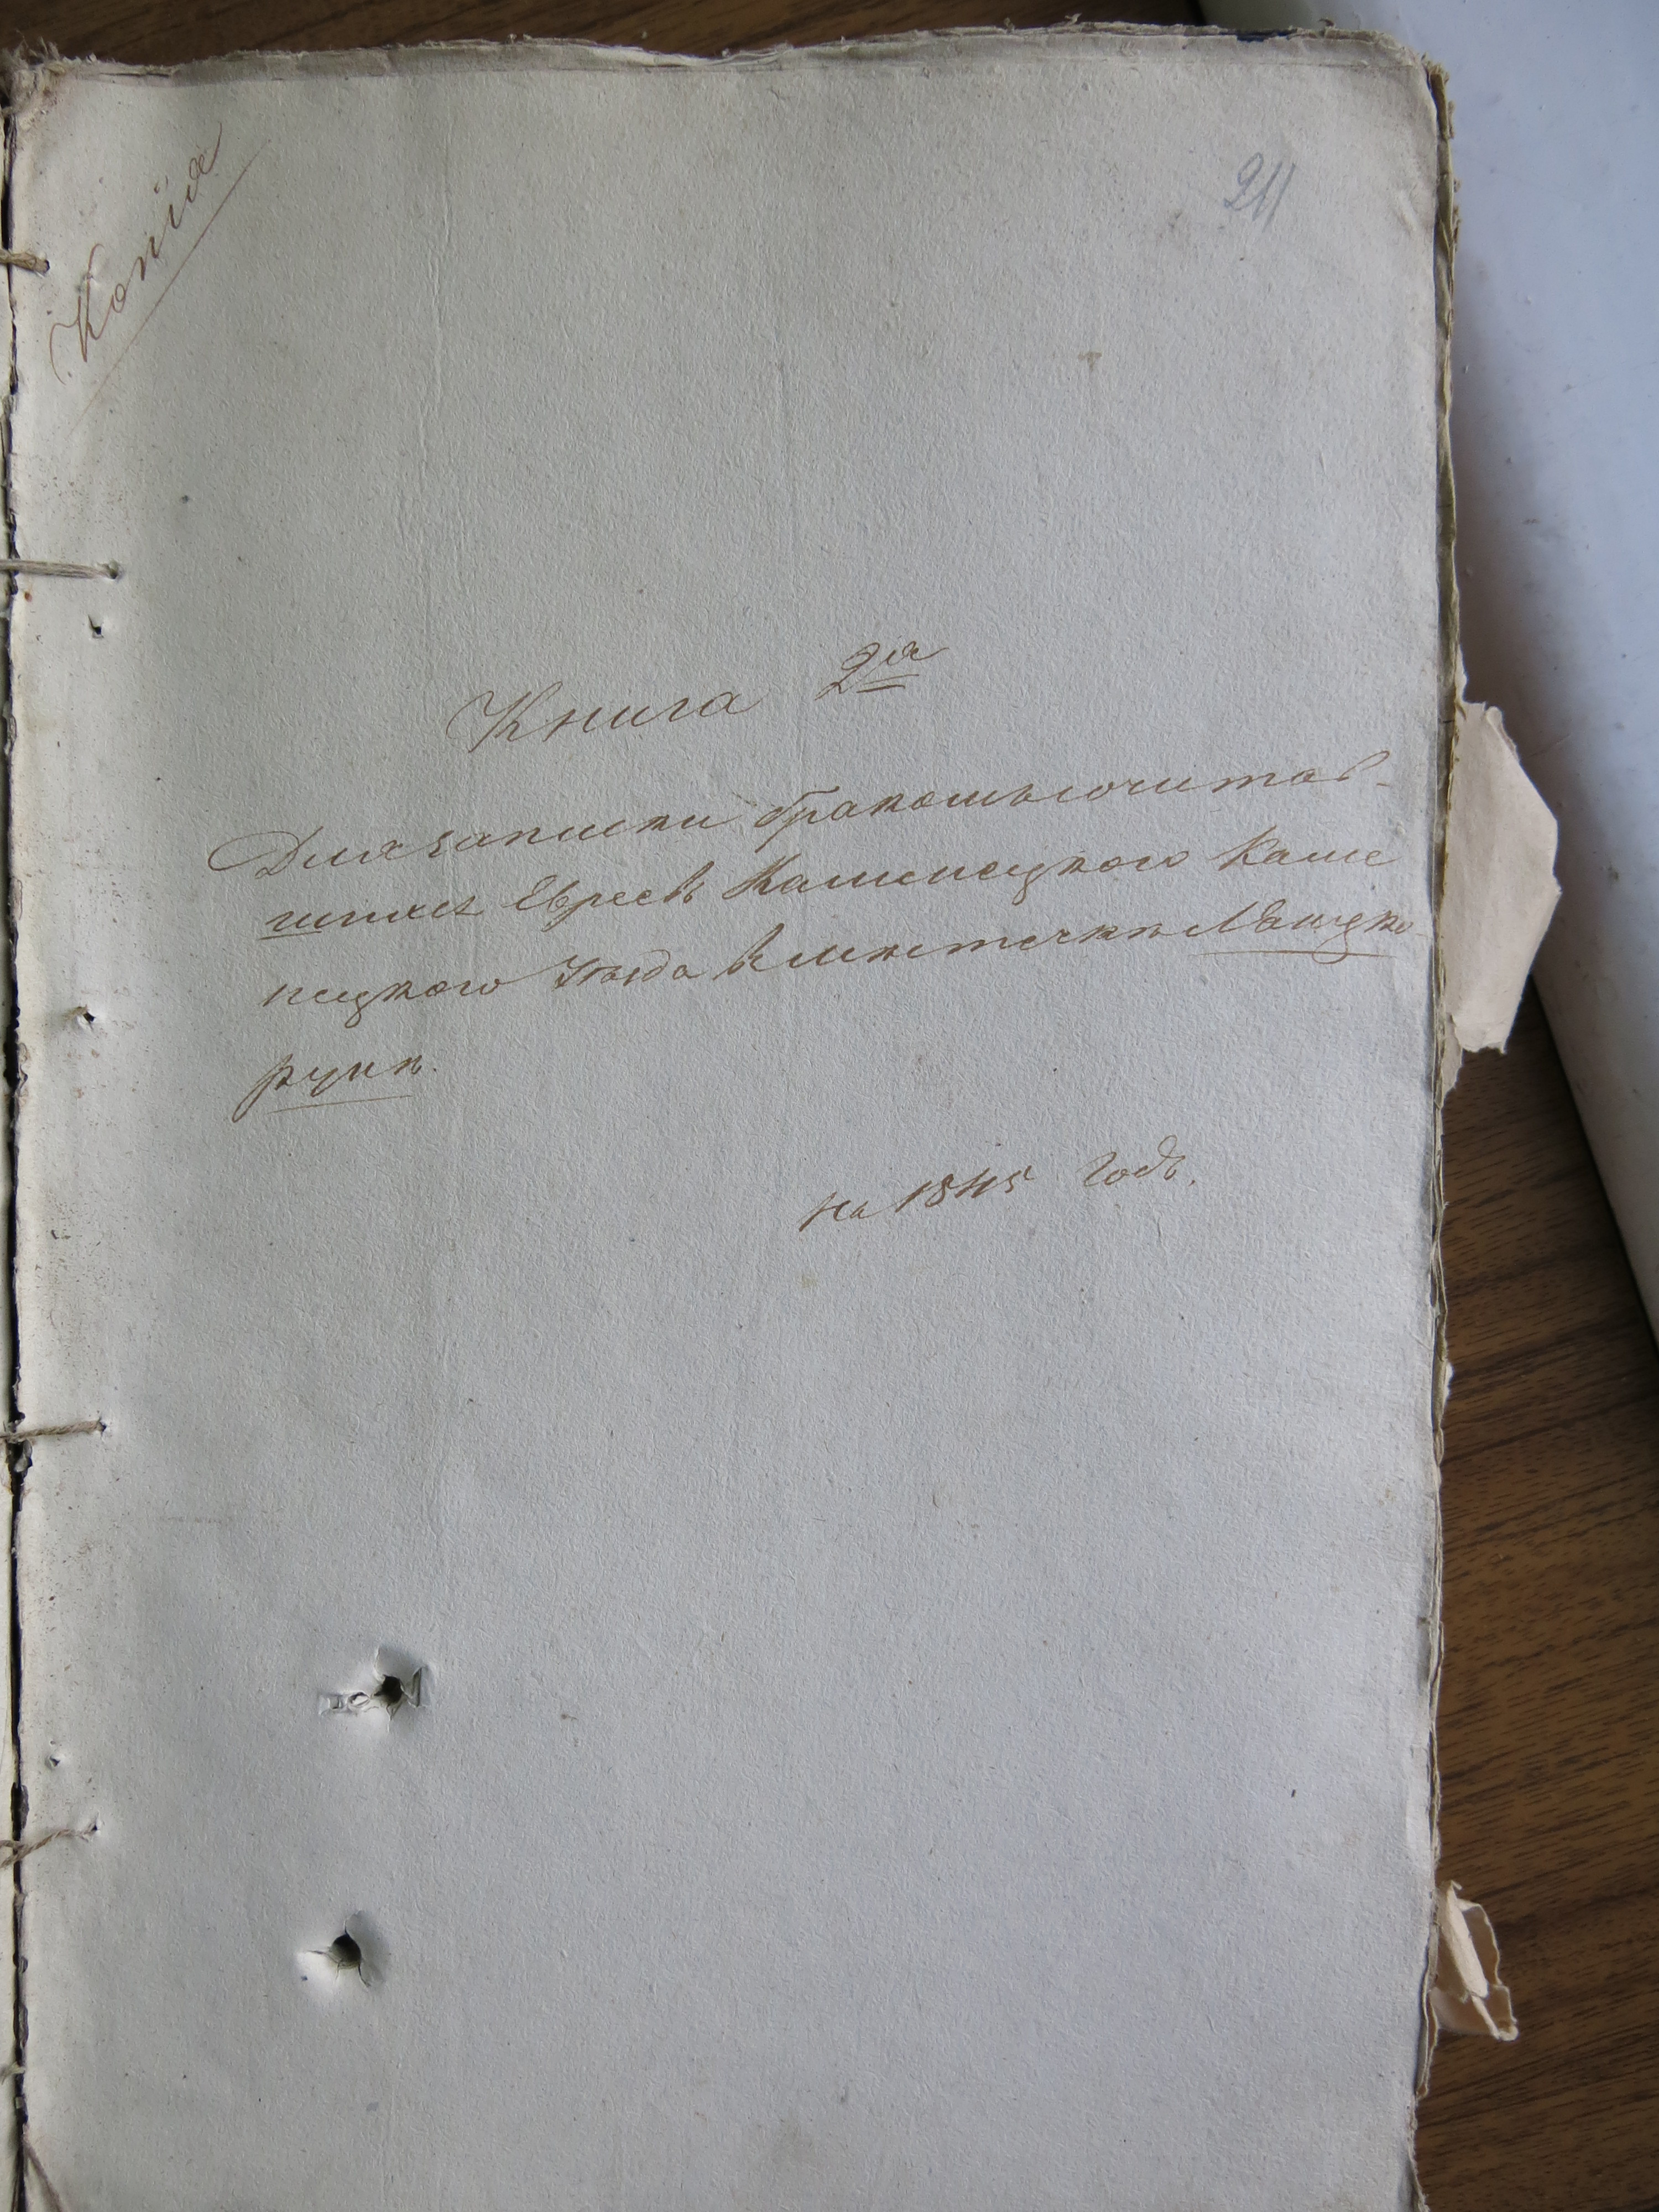 Копія
211
Книга 2я
Для записки бракомъ сочитав-
шихся Евреевъ Каменецкого Каме
нецкого Уезда в местечки Ланцко
руни.
на 1845 Годъ.